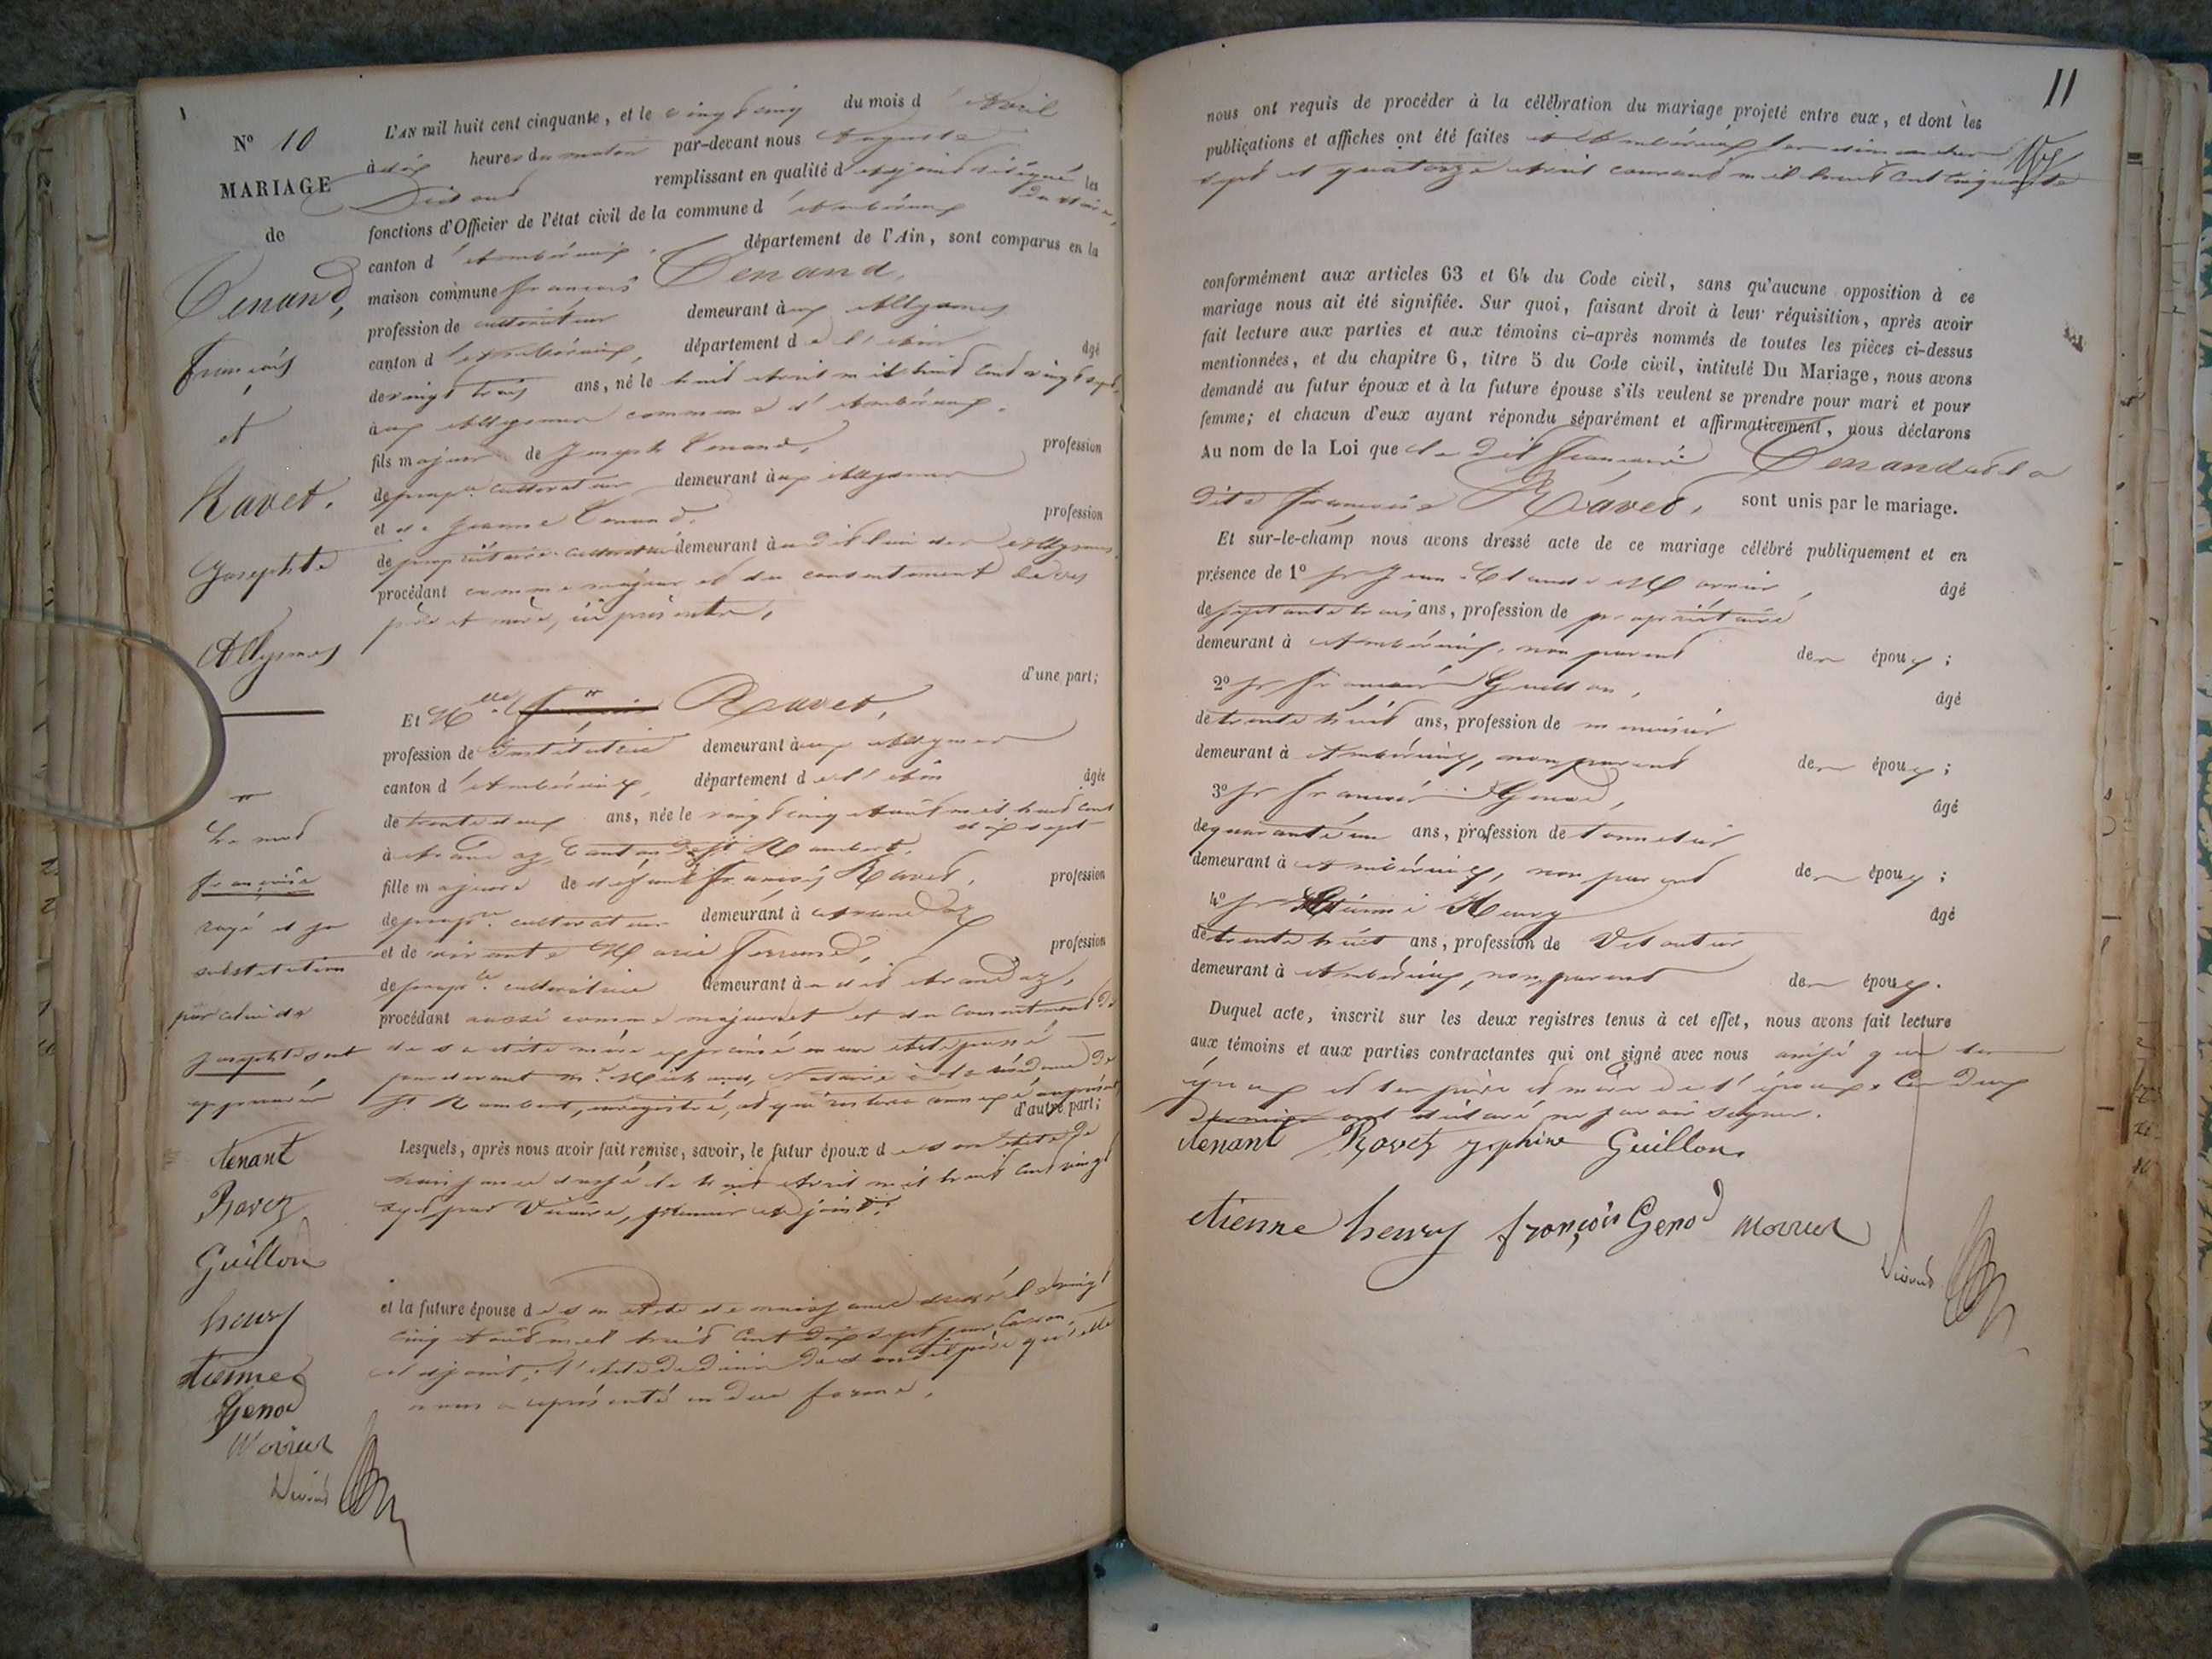 N° 10
MARIAGE
de
Tenand,
François
et
Ravet.
Josephte
Allymes
L'AN mil huit cent cinquante, et le vingt cinq du mois d'Avril
à dix heures du matin par-devant nous Auguste
DiDout remplissant en qualité d'adjoint délégué les
fonctions d'Officier de l'état civil de la commune d'Ambérieux du Maire,
canton d'Ambérieux, département de l'Ain, sont comparus en la
maison commune françois Tenand,
profession de cultivateur demeurant aux Allymes
canton d'Ambérieux, département de l'Ain âgé
de vingt trois ans, né le huit Avril mil huit cent vingt sept
aux Allymes commune d'Ambérieux.
fils majeur de Joseph Tenand, profession
de propre cultivateur demeurant aux Allymes
et de Jeanne Tenand. profession
de propriétaire cultivateur demeurant au dit lieu des Allymes.
procédant comme majeur et du consentement de ses
père et mère, ici présents,
d'une part;
Et Mlle françoise Ravet,
profession de Institutrice demeurant aux Allymes
canton d'Ambérieux, département de l'Ain âgée
de trente deux ans, née le vingt cinq Août mil huit cent
dix sept
à Arandaz, Canton de St Rambert.
fille majeure de défunt françois Ravet, profession
de propre cultivateur demeurant à Arandaz
et de vivante Marie Ferrand, profession
de propre cultivatrice demeurant au dit Arandaz,
procédant aussi comme majeure et du consentement de
sa dite mère exprimé en un acte passé
pardevant Me Notaire à la résidence de
St Rambert, enregistré, et qui restera annexé au présent
d'autre part;
le mot
françoise
rayé et sa
substitution
par celui de
Josephte sont
approuvés
Lesquels, après nous avoir fait remise, savoir, le futur époux de son acte de
naissance dressé le avril mil huit cent vingt
sept par premier adjoint.
et la future épouse de son acte de naissance dressé le vingt
cinq Août mil huit cent dix sept par
adjoint; l'acte de décès de son dit père qu'elle
nous a représenté en due forme.
tenant
Ravet
Guillon
henry
étienne
Genod
Morier
11
nous ont requis de procéder à la célébration du mariage projeté entre eux, et dont les
publications et affiches ont été faites à Ambérieux les dimanches
sept et quatorze Avril courant mil huit cent cinquante
conformément aux articles 63 et 64 du Code civil, sans qu'aucune opposition à ce
mariage nous ait été signifiée. Sur quoi, faisant droit à leur réquisition, après avoir
fait lecture aux parties et aux témoins ci-après nommés de toutes les pièces ci-dessus
mentionnées, et du chapitre 6, titre 5 du Code civil, intitulé Du Mariage, nous avons
demandé au futur époux et à la future épouse s'ils veulent se prendre pour mari et pour
femme; et chacun d'eux ayant répondu séparément et affirmativement, nous déclarons
Au nom de la Loi que le dit François Tenand et la
dite françoise Ravet, sont unis par le mariage.
Et sur-le-champ nous avons dressé acte de ce mariage célébré publiquement et en
présence de 1° sr Jean Claude Morier, âgé
de septante trois ans, profession de propriétaire
demeurant à Ambérieux, non parent des époux;
2° sr françois Guillon, âgé
de trente huit ans, profession de menuisier
demeurant à Ambérieux, non parent des époux;
3° sr françois Genod, âgé
de quarante un ans, profession de tonnelier
demeurant à Ambérieux, non parent des époux;
4° sr étienne Henry âgé
de trente huit ans, profession de
demeurant à Ambérieux, non parent des époux.
Duquel acte, inscrit sur les deux registres tenus à cet effet, nous avons fait lecture
aux témoins et aux parties contractantes qui ont signé avec nous ainsi que les
époux et les père et mère de l'époux. Ces deux
derniers ont déclaré ne pas savoir signer.
tenant Ravet josephine Guillon
étienne henry françois Genod Morier